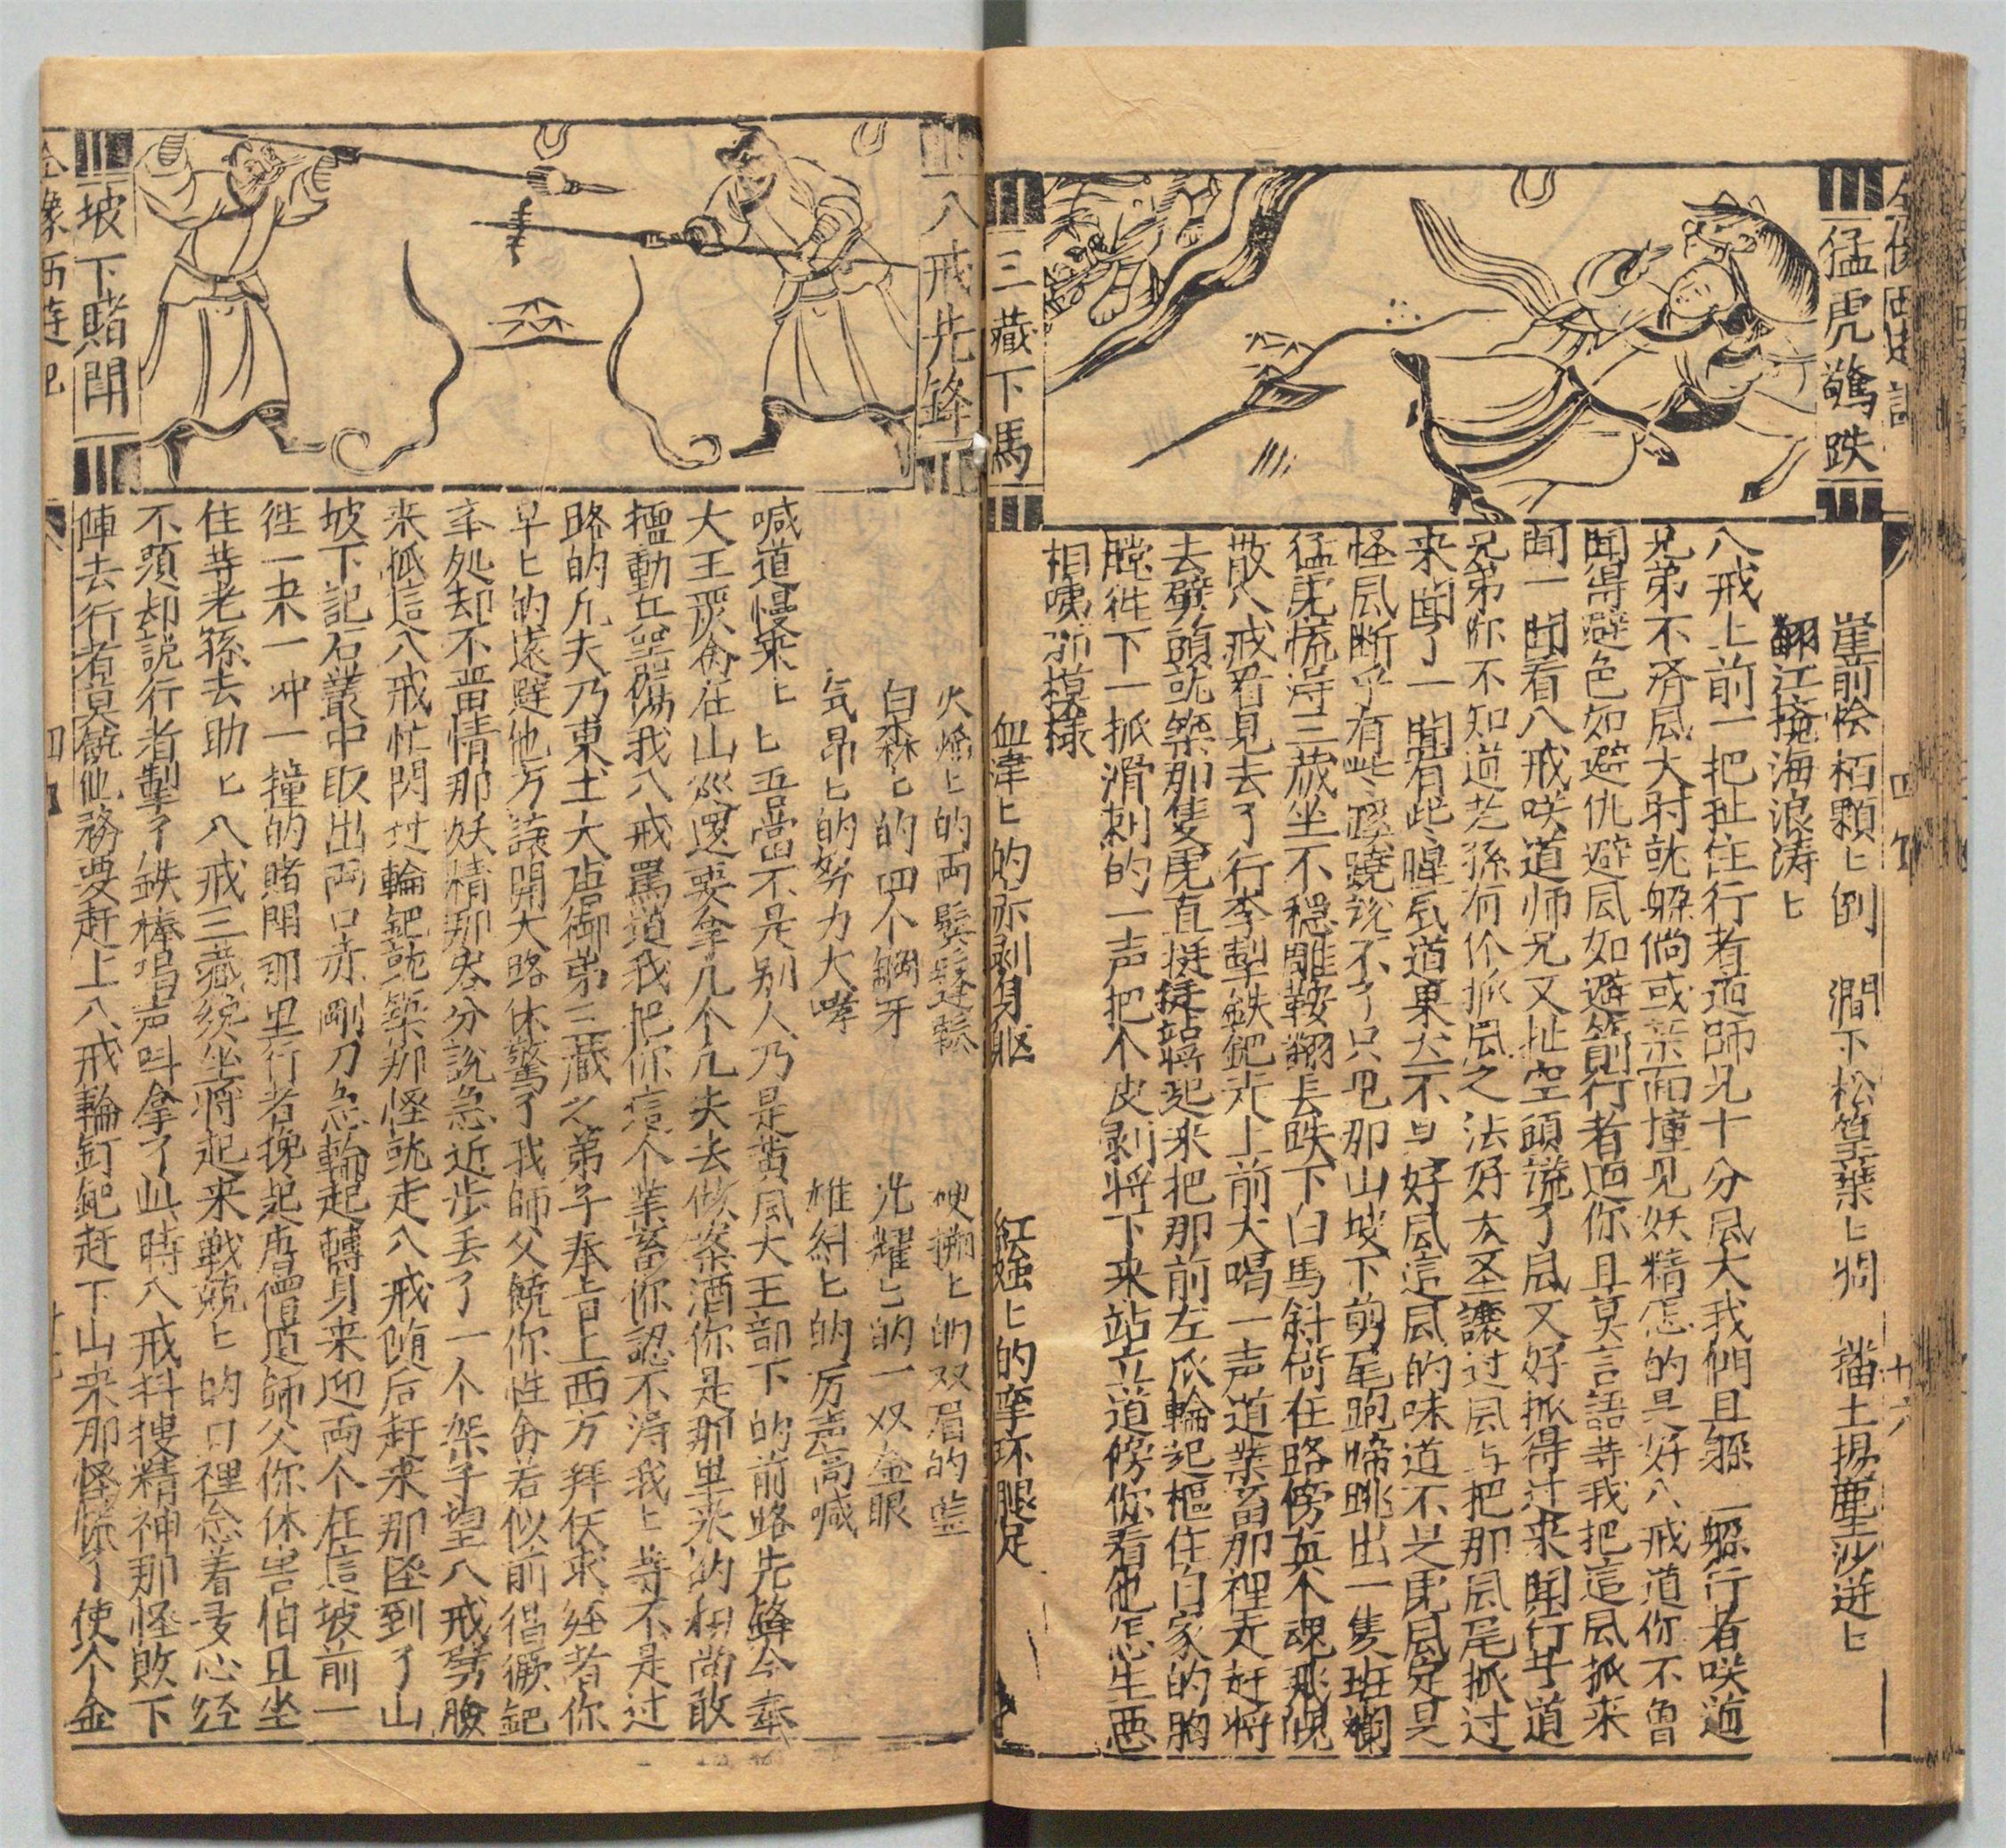 全像西遊記
猛虎驚跌
三藏下馬
崖前桧栢顆〻倒　澗下松篁葉〻凋　播土揚塵沙迸〻
翻江攪海浪涛〻
八戒上前一把扯住行者道師兄十分風大我們且躱一躱行者咲道
兄弟不济風大时就躲倘或亲面撞见妖精怎的是好八戒道你不曾
聞得避色如避仇避風如避箭行者道你且莫言語等我把這風抓来
聞一聞看八戒咲道师兄又扯空頭謊了風又好抓得过来聞行者道
兄弟你不知道老孫有个抓風之法好大圣讓过風与把那風尾抓过
来聞了一聞有些腥氣道果然不是好風這風的味道不是虎風定是
怪風断乎有些蹊蹺説不了只見那山坡下剪尾跑蹄跳出一隻班斕
猛虎慌得三藏坐不穏雕鞍翻長跌下白馬斜倚在路傍英个魂飛魄
散八戒看見去了行李掣鉄鈀走上前大喝一声道業畜那裡走赶将
去劈頭就築那隻虎直挺挺站將起来把那前左爪輪起樞住自家的胸
膛徃下一抓滑剌的一声把个皮剥将下来站立道傍你看他怎生惡
相咦那模樣
血津〻的赤剥身軀　紅媸〻的孪环腿足
八戒先鋒
坡下賭鬪
火焰〻的両鬢鬔鬆　硬搠〻的双眉的竖
白森〻的四个鋼牙　光耀〻的一双金眼
気昂〻的努力大哮　雄糾〻的厉声高喊
喊道慢來〻〻吾當不是别人乃是黄風大王部下的前路先鋒今奉
大王嚴命在山巡邏要拿几个凡夫去做案酒你是那里来的和尚敢
擅動兵噐傷我八戒罵道我把你這个業畜你認不得我〻等不是过
路的凡夫乃東土大唐御弟三藏之弟子奉旨上西方拜佛求經者你
早〻的遠避他方讓開大路休驚了我師父饒你性命若似前猖獗鈀
举处却不畱情那妖精那容分説急近步丢了一个架子望八戒劈臉
来抓這八戒忙閃过輪鈀就築那怪就走八戒随后赶来那怪到了山
坡下記石叢中取出両口赤刚刀急輪起轉身来迎両个在這坡前一
徃一来一冲一撞的賭鬪那里行者攙起唐僧道師父你休害怕且坐
住等老孫去助〻八戒三藏纔坐将起来戦兢〻的口裡念着多心经
不題却説行者掣了鉄棒喝声叫拿了此時八戒抖搜精神那怪敗下
陣去行者莫饒他務要赶上八戒輪釘鈀赶下山来那怪慌了使个金
全像西遊記